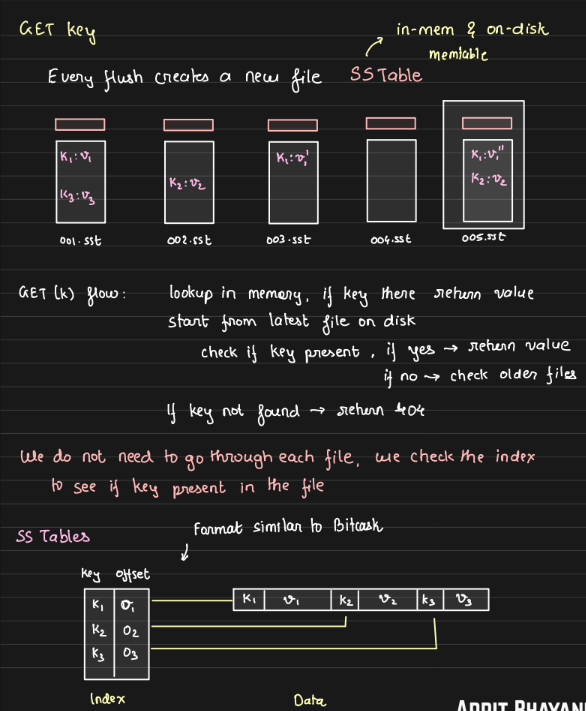 GET key
in-mem & on-disk
memtable
Every flush creates a new file SSTable
K₁:v₁
K₃:v₃
K₂:v₂
K₁:v₁'
K₁:v₁''
K₂:v₂
001.sst 002.sst 003.sst 004.sst 005.sst
GET (k) flow: lookup in memory, if key there return value
start from latest file on disk
check if key present, if yes → return value
if no → check older files
If key not found → return 404
We do not need to go through each file, we check the index
to see if key present in the file
SS Tables
Format similar to Bitcask
key offset
K₁ O₁
K₂ O₂
K₃ O₃
K₁ v₁ k₂ v₂ k₃ v₃
Index
Data